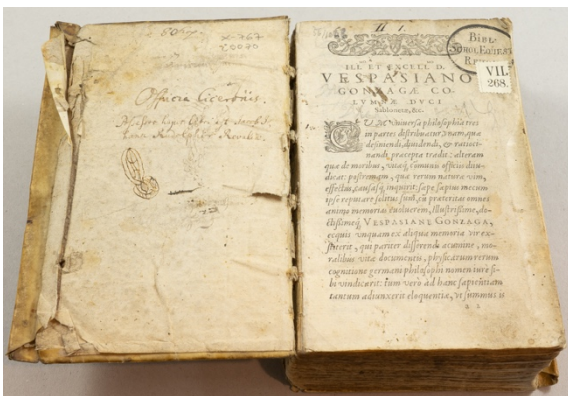 x-767
r0070
Officia Ciceronis.
BIBL.
SCHOL. EQUEST
VII.
268.
ILL. ET EXCELL. D.
VESPASIANO
GONZAGÆ CO-
LVMNÆ DVCI
Sablonetæ, &c.
VM Vniversa philosophia tres
in partes distribuatur, vnam, quæ
definiendi, diuidendi, & ratioci-
nandi præcepta tradit: alteram
quæ de moribus, vitæq́; communis officijs diiu-
dicat: postremam, quæ rerum naturæ vim,
effectus, causasq́; inquirit: sæpe sæpius mecum
ipse reputare solitus sum, cũ præteritæ omnei
animo memorias euoluerem, Illustrissime, do-
ctissimeq́; VESPASIANE GONZAGA,
ecquis vnquam ex aliqua memoria vir ex-
stiterit, qui pariter differendi acumine, mo-
ralibus vitæ documentis, physicarum rerum
cognitione germani philosophi nomen iure si-
bi vindicarit: tum verò ad hanc sapientiam
tantam adiunxerit eloquentiam, vt summus